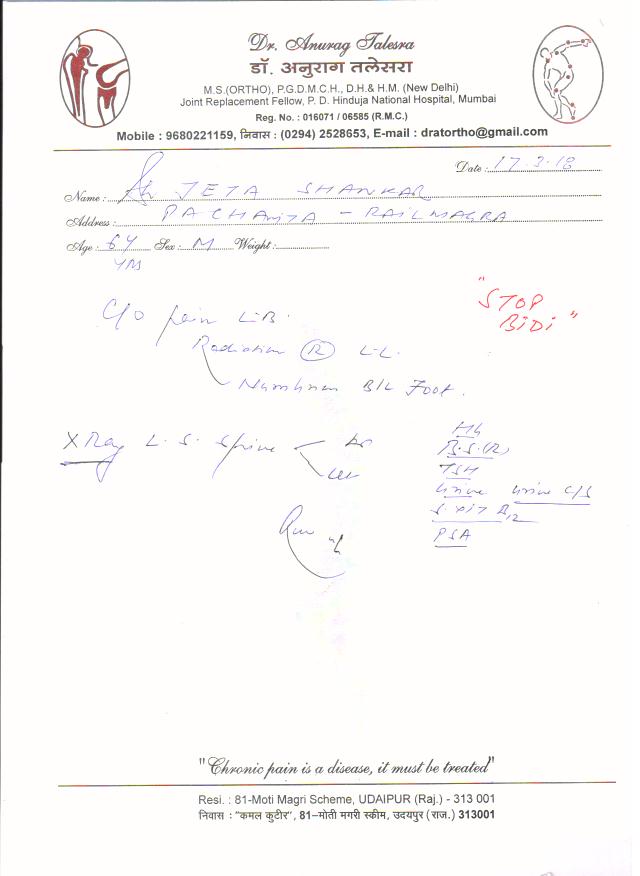 Dr. Anurag Talesra
डॉ. अनुराग तलेसरा
M.S.(ORTHO), P.G.D.M.C.H., D.H.& H.M. (New Delhi)
Joint Replacement Fellow, P. D. Hinduja National Hospital, Mumbai
Reg. No. : 016071 / 06585 (R.M.C.)
Mobile : 9680221159, निवास : (0294) 2528653, E-mail : dratortho@gmail.com
Date : 17.3.18
Name : Sh JETA SHANKAR
Address : PACHAMTA - RAILMAGRA
Age : 64 Sex : M Weight :
"STOP
BIDI"
C/O pain L.B.
Radiation (R) L.L.
Numbness B/L Foot.
X Ray L.S. Spine AP
Lat
Hb
B.S.(R)
TSH
Urine Urine C/S
S. VIT B12
PSA
"Chronic pain is a disease, it must be treated"
Resi. : 81-Moti Magri Scheme, UDAIPUR (Raj.) - 313 001
निवास : "कमल कुटीर", 81–मोती मगरी स्कीम, उदयपुर (राज.) 313001